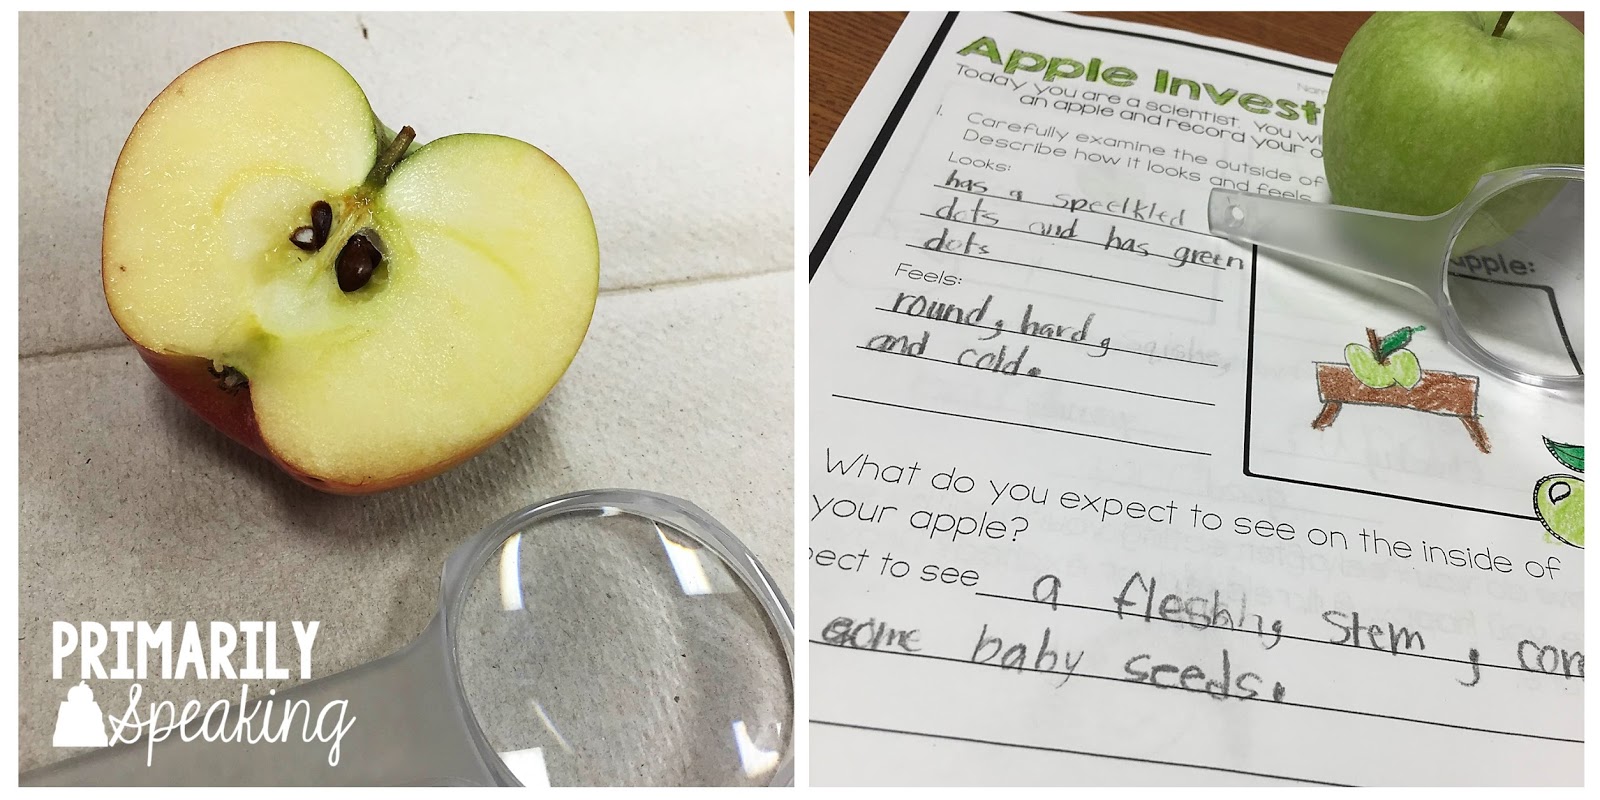 PRIMARILY
Speaking
Apple Invest
Today, you are a scientist. You wi
an apple and record your o
1. Carefully examine the outside of
Describe how it looks and feels
Looks:
has a speelkled
dots and has green
dots
Feels:
round, hard,
and cold.
apple:
What do you expect to see on the inside of
your apple?
pect to see a fleshing stem, core
some baby seeds.